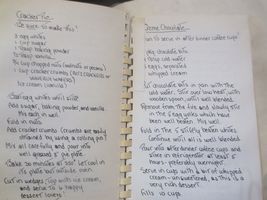 Cracker Pie
(Be sure to make this!)
3 egg whites
1 cup sugar
½ tsp baking powder
½ tsp vanilla
¾ cup chopped nuts (walnuts or pecans)
1 cup cracker crumbs
Ice cream (vanilla)
Beat egg whites until stiff
Add sugar, baking powder, and vanilla.
Mix each in well.
Fold in nuts
Add cracker crumbs. Crumbs are easily
obtained by using a rolling pin!
Mix all carefully and pour into
well greased 9" pie plate.
Bake 30 minutes at 325°. Let cool in
its plate but outside oven.
Cut in wedges, top with ice cream,
and serve to 6 happy
dessert lovers!
Creme Chocolate
to serve in after dinner coffee cups
pkg chocolate bits
cold water
5 eggs, separated
whipped cream
Put chocolate bits in pan with the
cold water. Stir over low heat, with
wooden spoon, until well blended.
Remove from the fire and slowly stir
in the 5 egg yolks which have
been well beaten. Mix well.
Fold in the 5 stiffly beaten whites
Continue until all is well blended.
Pour into after dinner coffee cups and
store in refrigerator at least 5
hours - preferably overnight.
Serve in cups with a bit of whipped
cream - unsweetened, as this is a
very rich dessert.
Fills 10 cups